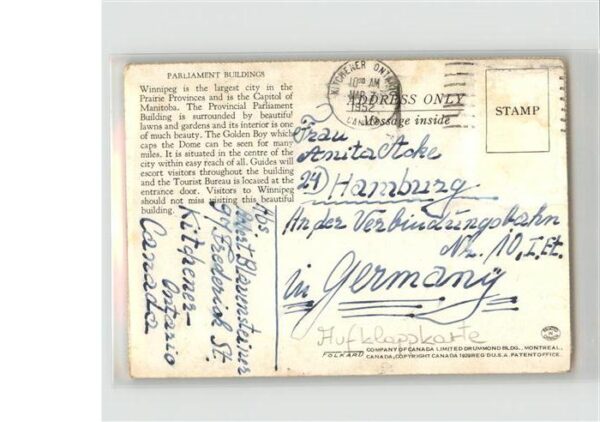 PARLIAMENT BUILDINGS
Winnipeg is the largest city in the
Prairie Provinces and is the Capitol of
Manitoba. The Provincial Parliament
Building is surrounded by beautiful
lawns and gardens and its interior is one
of much beauty. The Golden Boy which
caps the Dome can be seen for many
miles. It is situated in the centre of the
city within easy reach of all. Guides will
escort visitors throughout the building
and the Tourist Bureau is located at the
entrance door. Visitors to Winnipeg
should not miss visiting this beautiful
building.
KITCHENER ONTARIO
10 AM
MAR 7
1952
CANADA
ADDRESS ONLY
Message inside
STAMP
Frau
Anita
24) Hamburg
An der Verbindungsbahn
Nr. 10, I. Et.
in Germany
Abs.
Frederick St.
Kitchener-
Ontario
Canada
Aufklappkarte
FOLKARD COMPANY OF CANADA LIMITED DRUMMOND BLDG., MONTREAL,
CANADA, COPYRIGHT CANADA 1929 REG D U.S.A. PATENT OFFICE.